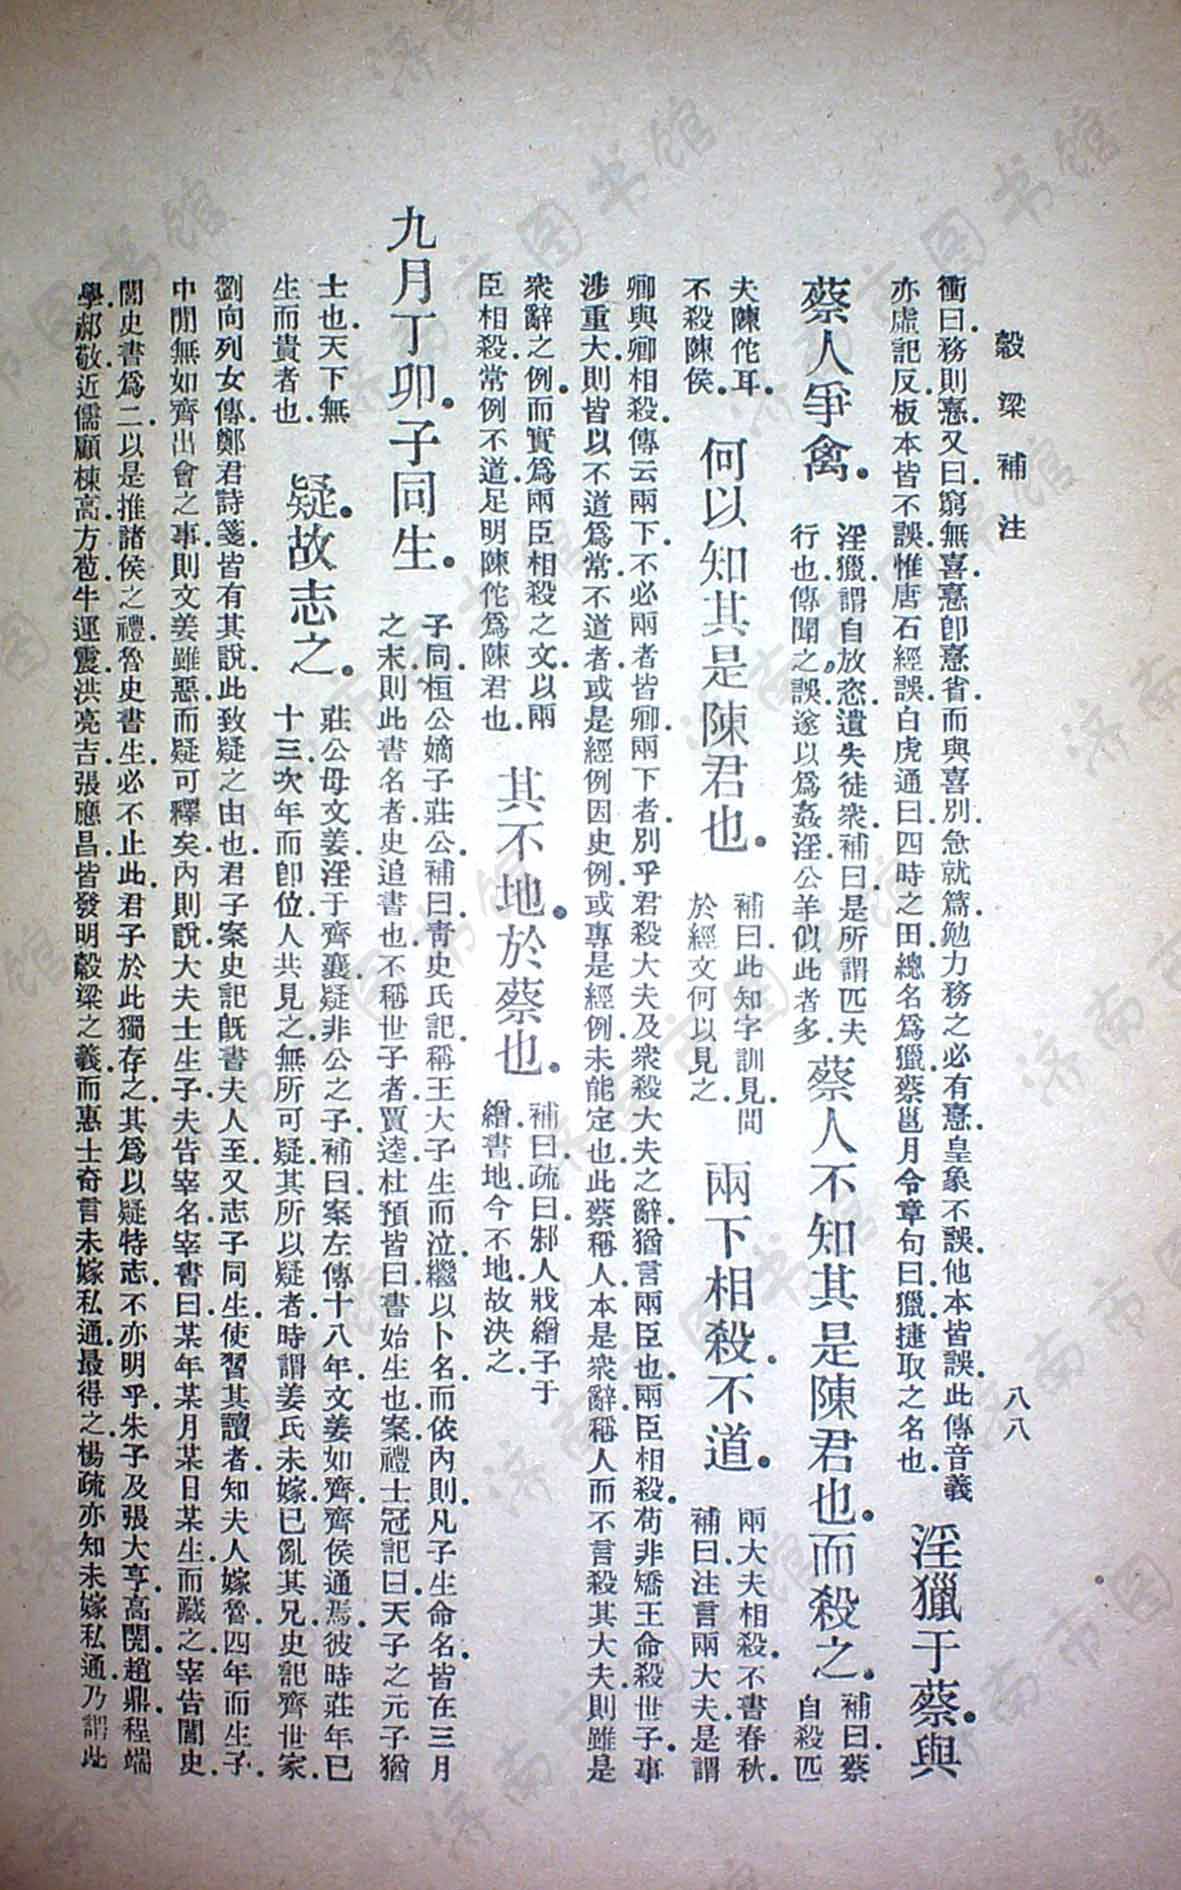 穀梁補注
八八
衝曰務則憙又曰窮無喜憙卽憙省而與喜別急就篇勉力務之必有憙皇象不誤他本皆誤此傳音義
亦虛記反板本皆不誤惟唐石經誤白虎通曰四時之田總名爲獵蔡邕月令章句曰獵捷取之名也
淫獵于蔡與
蔡人爭禽
淫獵謂自放恣遺失徒衆補曰是所謂匹夫
行也傳聞之誤遂以爲姦淫公羊似此者多
蔡人不知其是陳君也而殺之
補曰蔡
自殺匹
夫陳佗耳
不殺陳侯
何以知其是陳君也
補曰此知字訓見問
於經文何以見之
兩下相殺不道
兩大夫相殺不書春秋
補曰注言兩大夫是謂
卿與卿相殺傳云兩下不必兩者皆卿兩下者別乎君殺大夫及衆殺大夫之辭猶言兩臣也兩臣相殺苟非矯王命殺世子事
涉重大則皆以不道爲常不道者或是經例因史例或專是經例未能定也此蔡稱人本是衆辭稱人而不言殺其大夫則雖是
衆辭之例而實爲兩臣相殺之文以兩
臣相殺常例不道足明陳佗爲陳君也
其不地於蔡也
補曰疏曰邾人戕繒子于
繒書地今不地故決之
九月丁卯子同生
子同桓公嫡子莊公補曰靑史氏記稱王大子生而泣繼以卜名而依內則凡子生命名皆在三月
之末則此書名者史追書也不稱世子者賈逵杜預皆曰書始生也案禮士冠記曰天子之元子猶
士也天下無
生而貴者也
疑故志之
莊公母文姜淫于齊襄疑非公之子補曰案左傳十八年文姜如齊齊侯通焉彼時莊年已
十三次年而卽位人共見之無所可疑其所以疑者時謂姜氏未嫁已亂其兄史記齊世家
劉向列女傳鄭君詩箋皆有其說此致疑之由也君子案史記旣書夫人至又志子同生使習其讀者知夫人嫁魯四年而生子
中閒無如齊出會之事則文姜雖惡而疑可釋矣內則說大夫士生子夫告宰名宰書曰某年某月某日某生而藏之宰告閭史
閭史書爲二以是推諸侯之禮魯史書生必不止此君子於此獨存之其爲以疑特志不亦明乎朱子及張大亨高閌趙鼎程端
學郝敬近儒顧棟高方苞牛運震洪亮吉張應昌皆發明穀梁之義而惠士奇言未嫁私通最得之楊疏亦知未嫁私通乃謂此